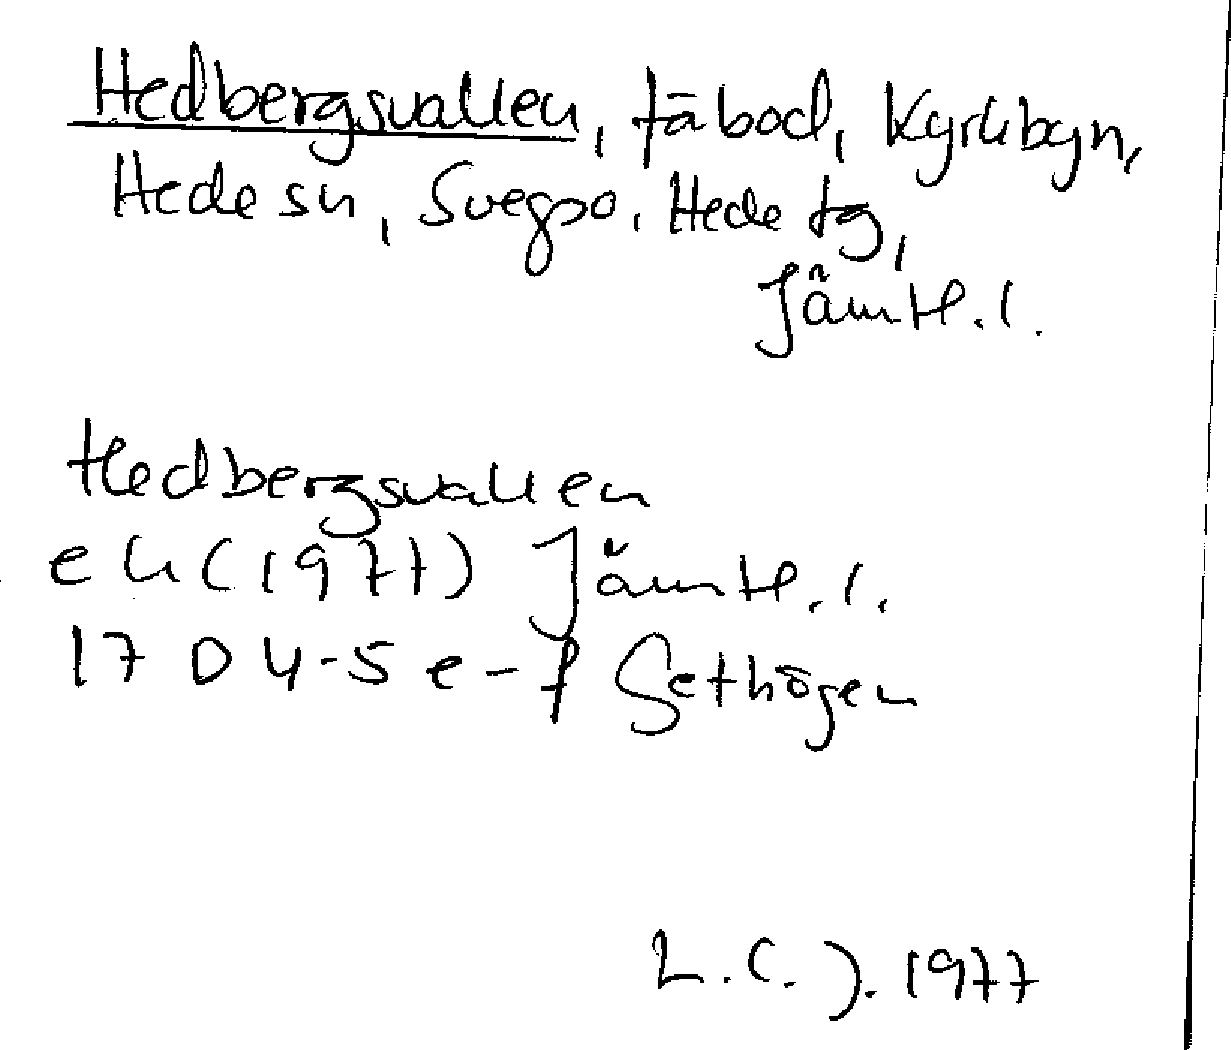 Hedbergsvallen, fäbod, Kyrkbyn,
Hede sn, Svegs po, Hede tg,
Jämtl. l.
Hedbergsvallen
ek (1977) Jämtl. l.
17 D 4-5 e-f Gethögen
L.C.J. 1977